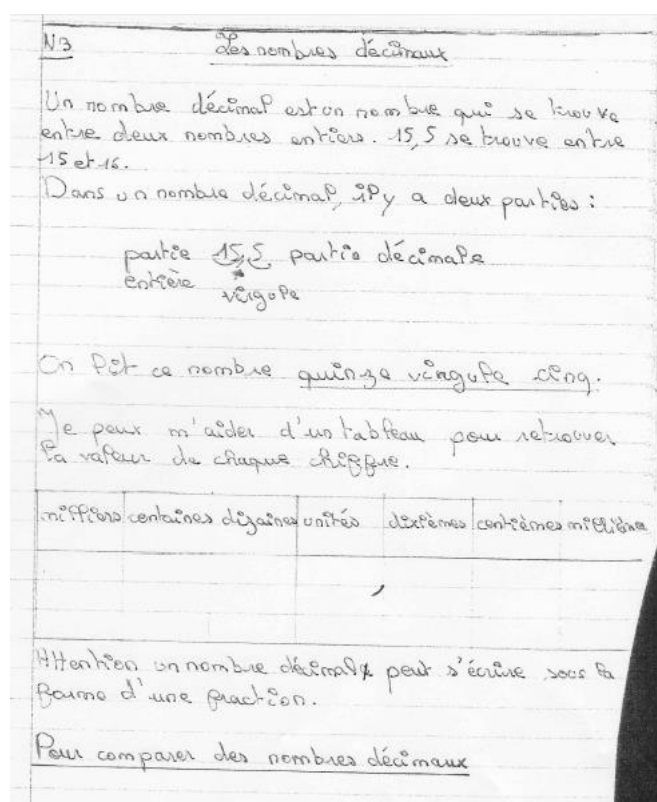 N3 Les nombres décimaux
Un nombre décimal est un nombre qui se trouve
entre deux nombres entiers. 15,5 se trouve entre
15 et 16.
Dans un nombre décimal, il y a deux parties :
partie 15,5 partie décimale
entière virgule
On lit ce nombre quinze virgule cinq.
Je peux m'aider d'un tableau pour retrouver
la valeur de chaque chiffre.
milliers centaines dizaines unités dixièmes centièmes millième
,
Attention un nombre décimal peut s'écrire sous la
forme d'une fraction.
Pour comparer des nombres décimaux